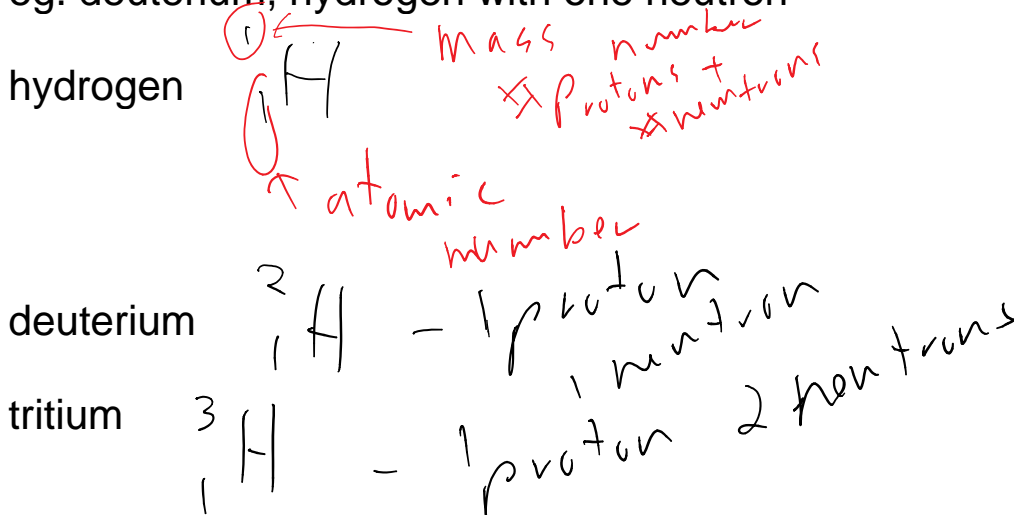 eg. deuterium, hydrogen with one neutron
1 ← mass number
hydrogen 1 H # Protons +
# neutrons
↑ atomic
number
deuterium 2 1 H - 1 proton
1 neutron
tritium 3 1 H - 1 proton 2 neutrons